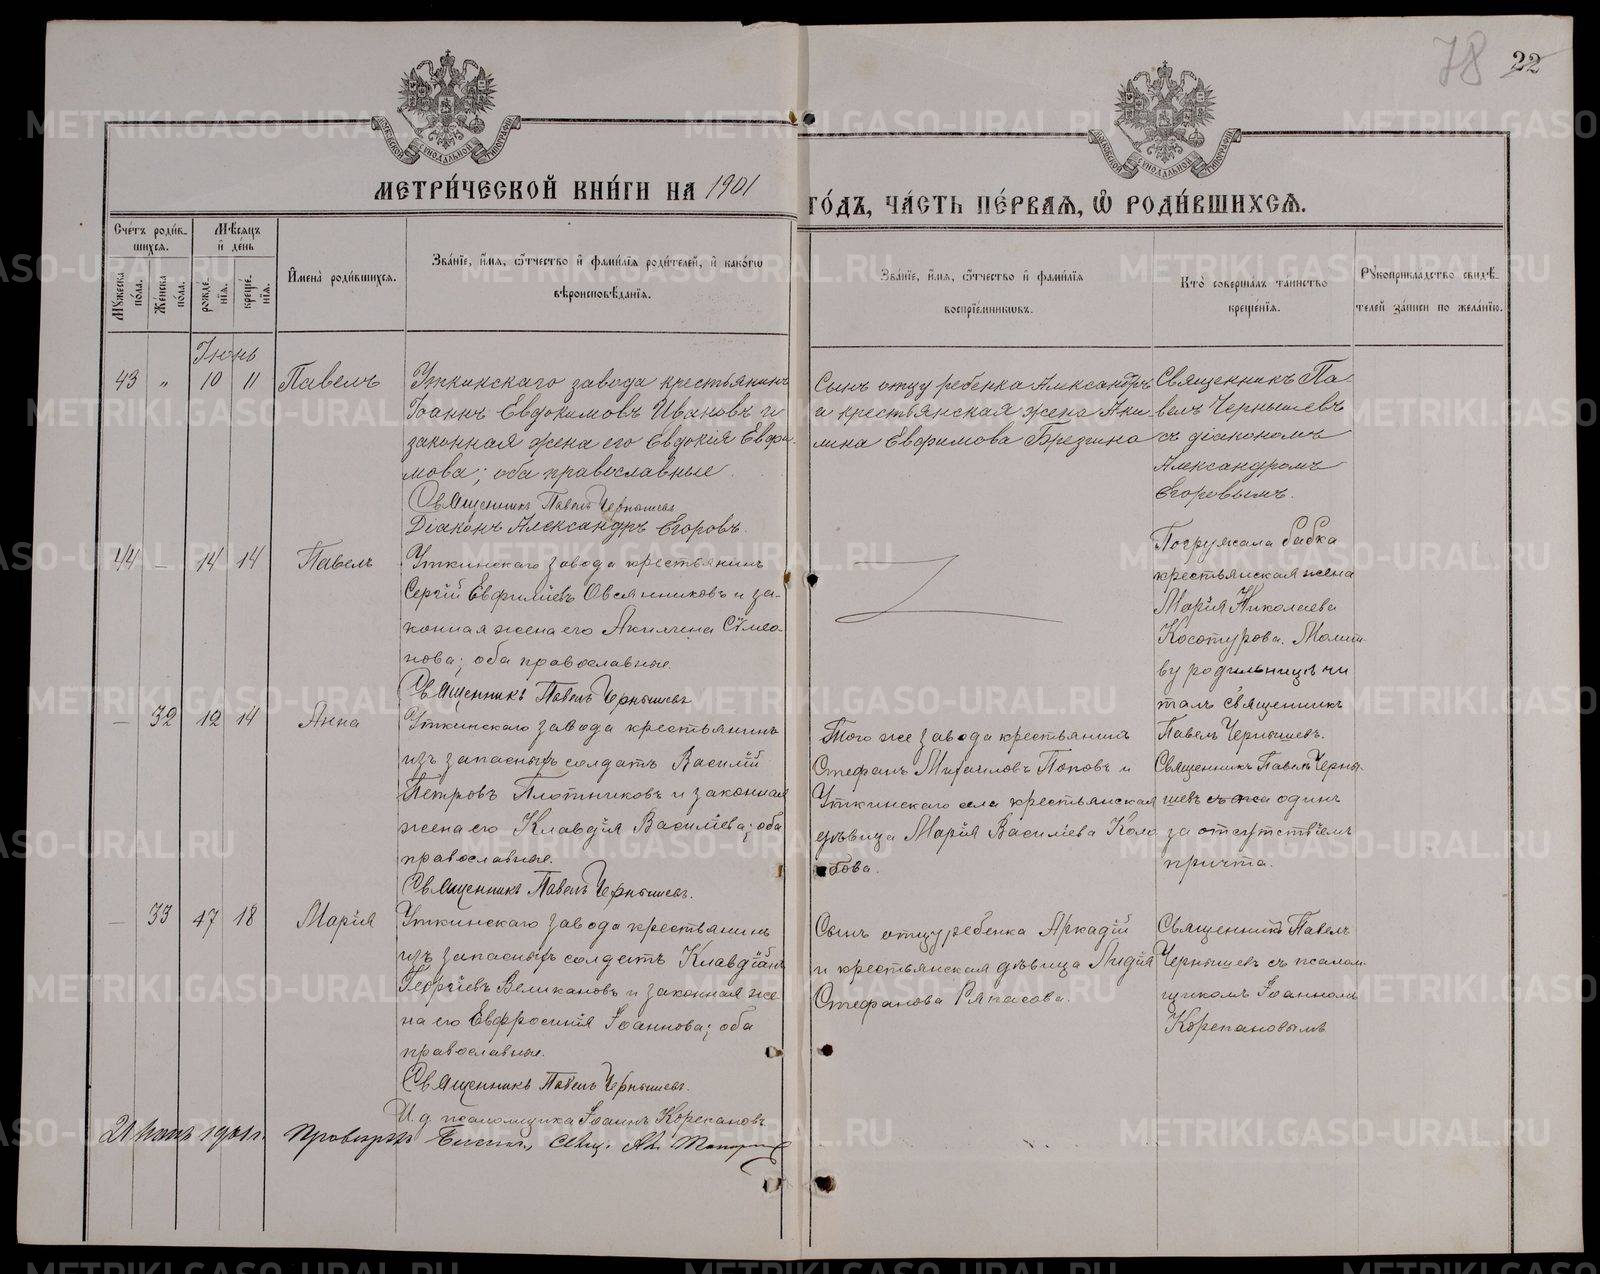 78 22
МОСКОВСКОЙ СУНОДАЛЬНОЙ ТИПОГРАФІИ
МОСКОВСКОЙ СУНОДАЛЬНОЙ ТИПОГРАФІИ
МЕТРИ́ЧЕСКОЙ КНИ́ГИ НА 1901
ГО́ДЪ, ЧА́СТЬ ПЕ́РВАѦ, Ѽ РОДИ́ВШИХСѦ.
Сче́тъ роди́в-
шихсѧ.
Мꙋ́жеска
по́ла.
Же́нска
по́ла.
Мѣ́сѧцъ
и҆ де́нь
рожде́-
нїѧ.
креще́-
нїѧ.
И҆мена̀ роди́вшихсѧ.
Зва́нїе, и҆́мѧ, ѻ҆́тчество и҆ фами́лїѧ роди́телей, и҆ како́гѡ
вѣроисповѣ́данїѧ.
Зва́нїе, и҆́мѧ, ѻ҆́тчество и҆ фами́лїѧ
воспрїе́мникѡвъ.
Кто̀ соверша́лъ та́инство
креще́нїѧ.
Рꙋкоприкла́дство свидѣ́-
телей за́писи по жела́нїю.
Іюнь
43 " 10 11 Павелъ
Уткинскаго завода крестьянинъ
Іоаннъ Евдокимовъ Ивановъ и
законная жена его Евдокія Евфи-
мова; оба православные.
Священникъ Павелъ Чернышевъ
Діаконъ Александръ Егоровъ.
Сынъ отцу ребенка Александръ
а крестьянская жена Аки-
лина Евфимова Брезгина
Священникъ Па-
велъ Чернышевъ
съ діакономъ
Александромъ
Егоровымъ.
44 — 14 14 Павелъ
Уткинскаго завода крестьянинъ
Сергій Евфиміевъ Овсянниковъ и за-
конная жена его Акилина Сѵмео-
нова; оба православные.
Священникъ Павелъ Чернышевъ
Погружала бабка
крестьянская жена
Марія Николаева
Косотурова. Молит-
ву родильницѣ чи
талъ священникъ
Павелъ Чернышевъ.
— 32 12 14 Анна
Уткинскаго завода крестьянинъ
изъ запасныхъ солдатъ Василій
Петровъ Плотниковъ и законная
жена его Клавдія Василіева; оба
православные.
Священникъ Павелъ Чернышевъ.
Того же завода крестьянинъ
Стефанъ Михаиловъ Поповъ и
Уткинскаго села крестьянская
дѣвица Марія Василіева Коло
бова.
Священникъ Павелъ Черны-
шевъ одинъ
за отсутствіемъ
причта.
— 33 17 18 Марія
Уткинскаго завода крестьянинъ
изъ запасныхъ солдатъ Клавдіанъ
Георгіевъ Великановъ и законная же-
на его Евфросинія Іоаннова; оба
православные.
Священникъ Павелъ Чернышевъ.
И. д. псаломщика Іоаннъ Корепановъ.
Сынъ отцу ребенка Аркадій
и крестьянская дѣвица Лидія
Стефанова Ряпасова.
Священникъ Павелъ
Чернышевъ съ псалом-
щикомъ Іоанномъ
Корепановымъ
21 1901 г.
METRIKI.GASO-URAL.RU